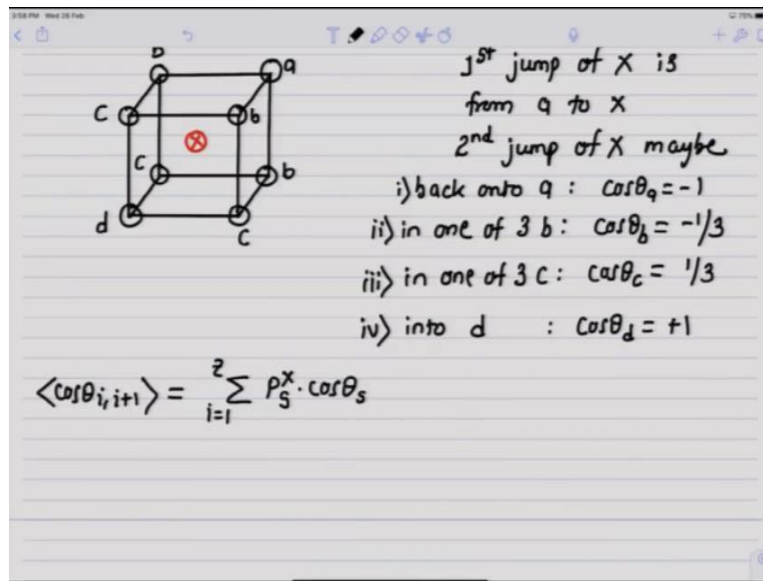 3:58 PM Wed 28 Feb
70%
T
b
a
1st jump of X is
C
b
from a to X
X
2nd jump of X maybe
C
b
i) back onto a : cosθa = -1
d
C
ii) in one of 3 b : cosθb = -1/3
iii) in one of 3 C : cosθc = 1/3
iv) into d : cosθd = +1
<cosθi, i+1> = Σ Ps^x . cosθs
z
i=1